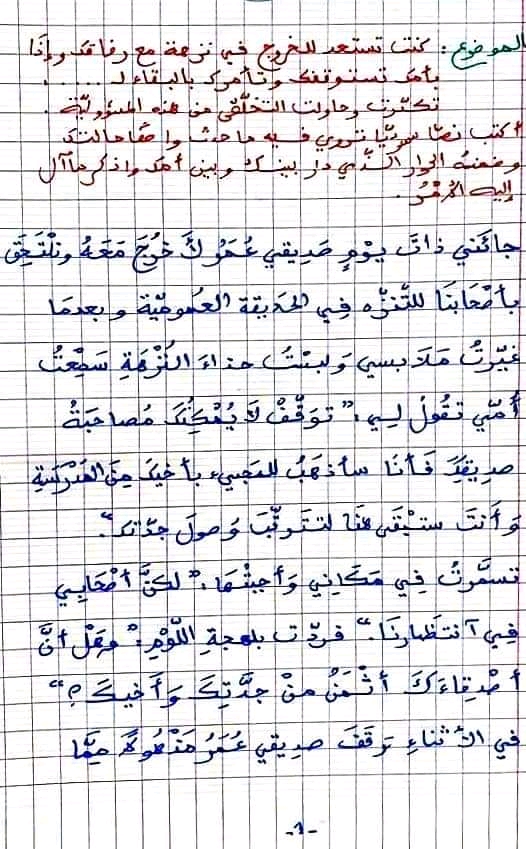 الموضوع: كنت تستعد للخروج في نزهة مع رفاقك وإذا
بأمك تستوقفك وتأمرك بالبقاء لـ ......
تكدّرت وحاولت التخلّص من هذه المسؤوليّة.
أكتب نصّا سرديّا تروي فيه ما حدث واصفا حالتك
وضمنه الحوار الّذي دار بينك وبين أمك واذكر ما آل
إليه الأمْرُ.
جائَني ذاتَ يَوْمٍ صَدِيقي عُمَرُ لأَخْرُجَ مَعَهُ ونَلْتَحِقَ
بأصْحابِنَا للتّنزّه فِي الحَدِيقة العُمُومِيّة وبعدمَا
غيّرتُ مَلَابسي وَلبسْتُ حذاءَ النُّزْهَةِ سَمِعْتُ
أمّي تقُولُ لِي: "توَقّفْ لاَ يُمْكِنُكَ مُصاحَبَةُ
صديقِكَ فَأنَا سأذهَبُ للمَجِيءِ بأخيكَ مِنَ المَدْرَسَةِ
وَأنتَ ستبْقَى هُنَا لتترقّبَ وَصولَ جدّتك".
تسمَّرتُ فِي مَكَانِي وَأجبْتُهَا: "لكنَّ أصْحَابِي
فِي آنتظَارِنَا." فردّت بلهجةِ اللّوْمِ: "وَهَلْ أنَّ
أصْدقاءَكَ أثْمَنُ منْ جدَّتِكَ وَأخيكَ؟"
في الأثناءِ وَقَفَ صديقِي عُمَرُ مَذْهُولًا مِمَّا
-1-